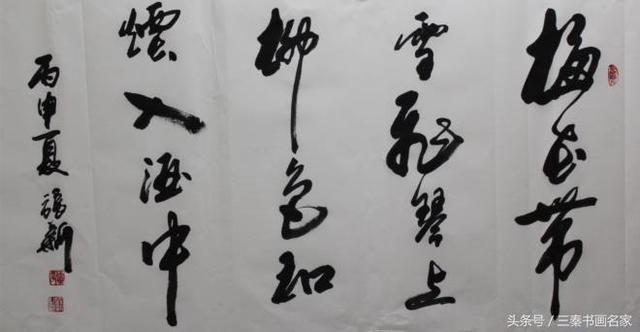 梅花带
雪飛琴上
柳色和
煙入酒中
丙申夏
头条号／三秦书画名家